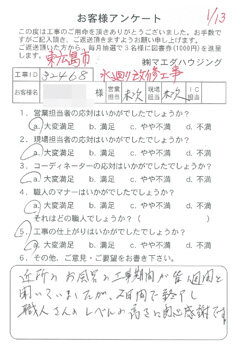 お客様アンケート
1/13
この度は工事のご用命を頂きありがとうございました。お手数で
すがご記入頂き、ご返送頂きますようお願い申し上げます。
ご返送頂いた方から、毎月抽選で3名様に図書券(1000円)を進呈
します。
東広島市
㈱マエダハウジング
工事ID
水廻り改修工事
お客様名
様
営業担当
現場担当
IC担当
1. 営業担当者の応対はいかがでしたでしょうか?
a. 大変満足 b. 満足 c. やや不満 d. 不満
2. 現場担当者の応対はいかがでしたでしょうか?
a. 大変満足 b. 満足 c. やや不満 d. 不満
3. コーディネーターの応対はいかがでしたでしょうか?
a. 大変満足 b. 満足 c. やや不満 d. 不満
4. 職人のマナーはいかがでしたでしょうか?
a. 大変満足 b. 満足 c. やや不満 d. 不満
それはどの職人でしょうか?( )
5. 工事の仕上がりはいかがでしたでしょうか?
a. 大変満足 b. 満足 c. やや不満 d. 不満
6. その他、ご意見・ご要望をお書き下さい。
近所のお風呂の工事期間が 週間と
聞いていましたが、2日間で終了し
職人さんのレベルの高さに 感謝です